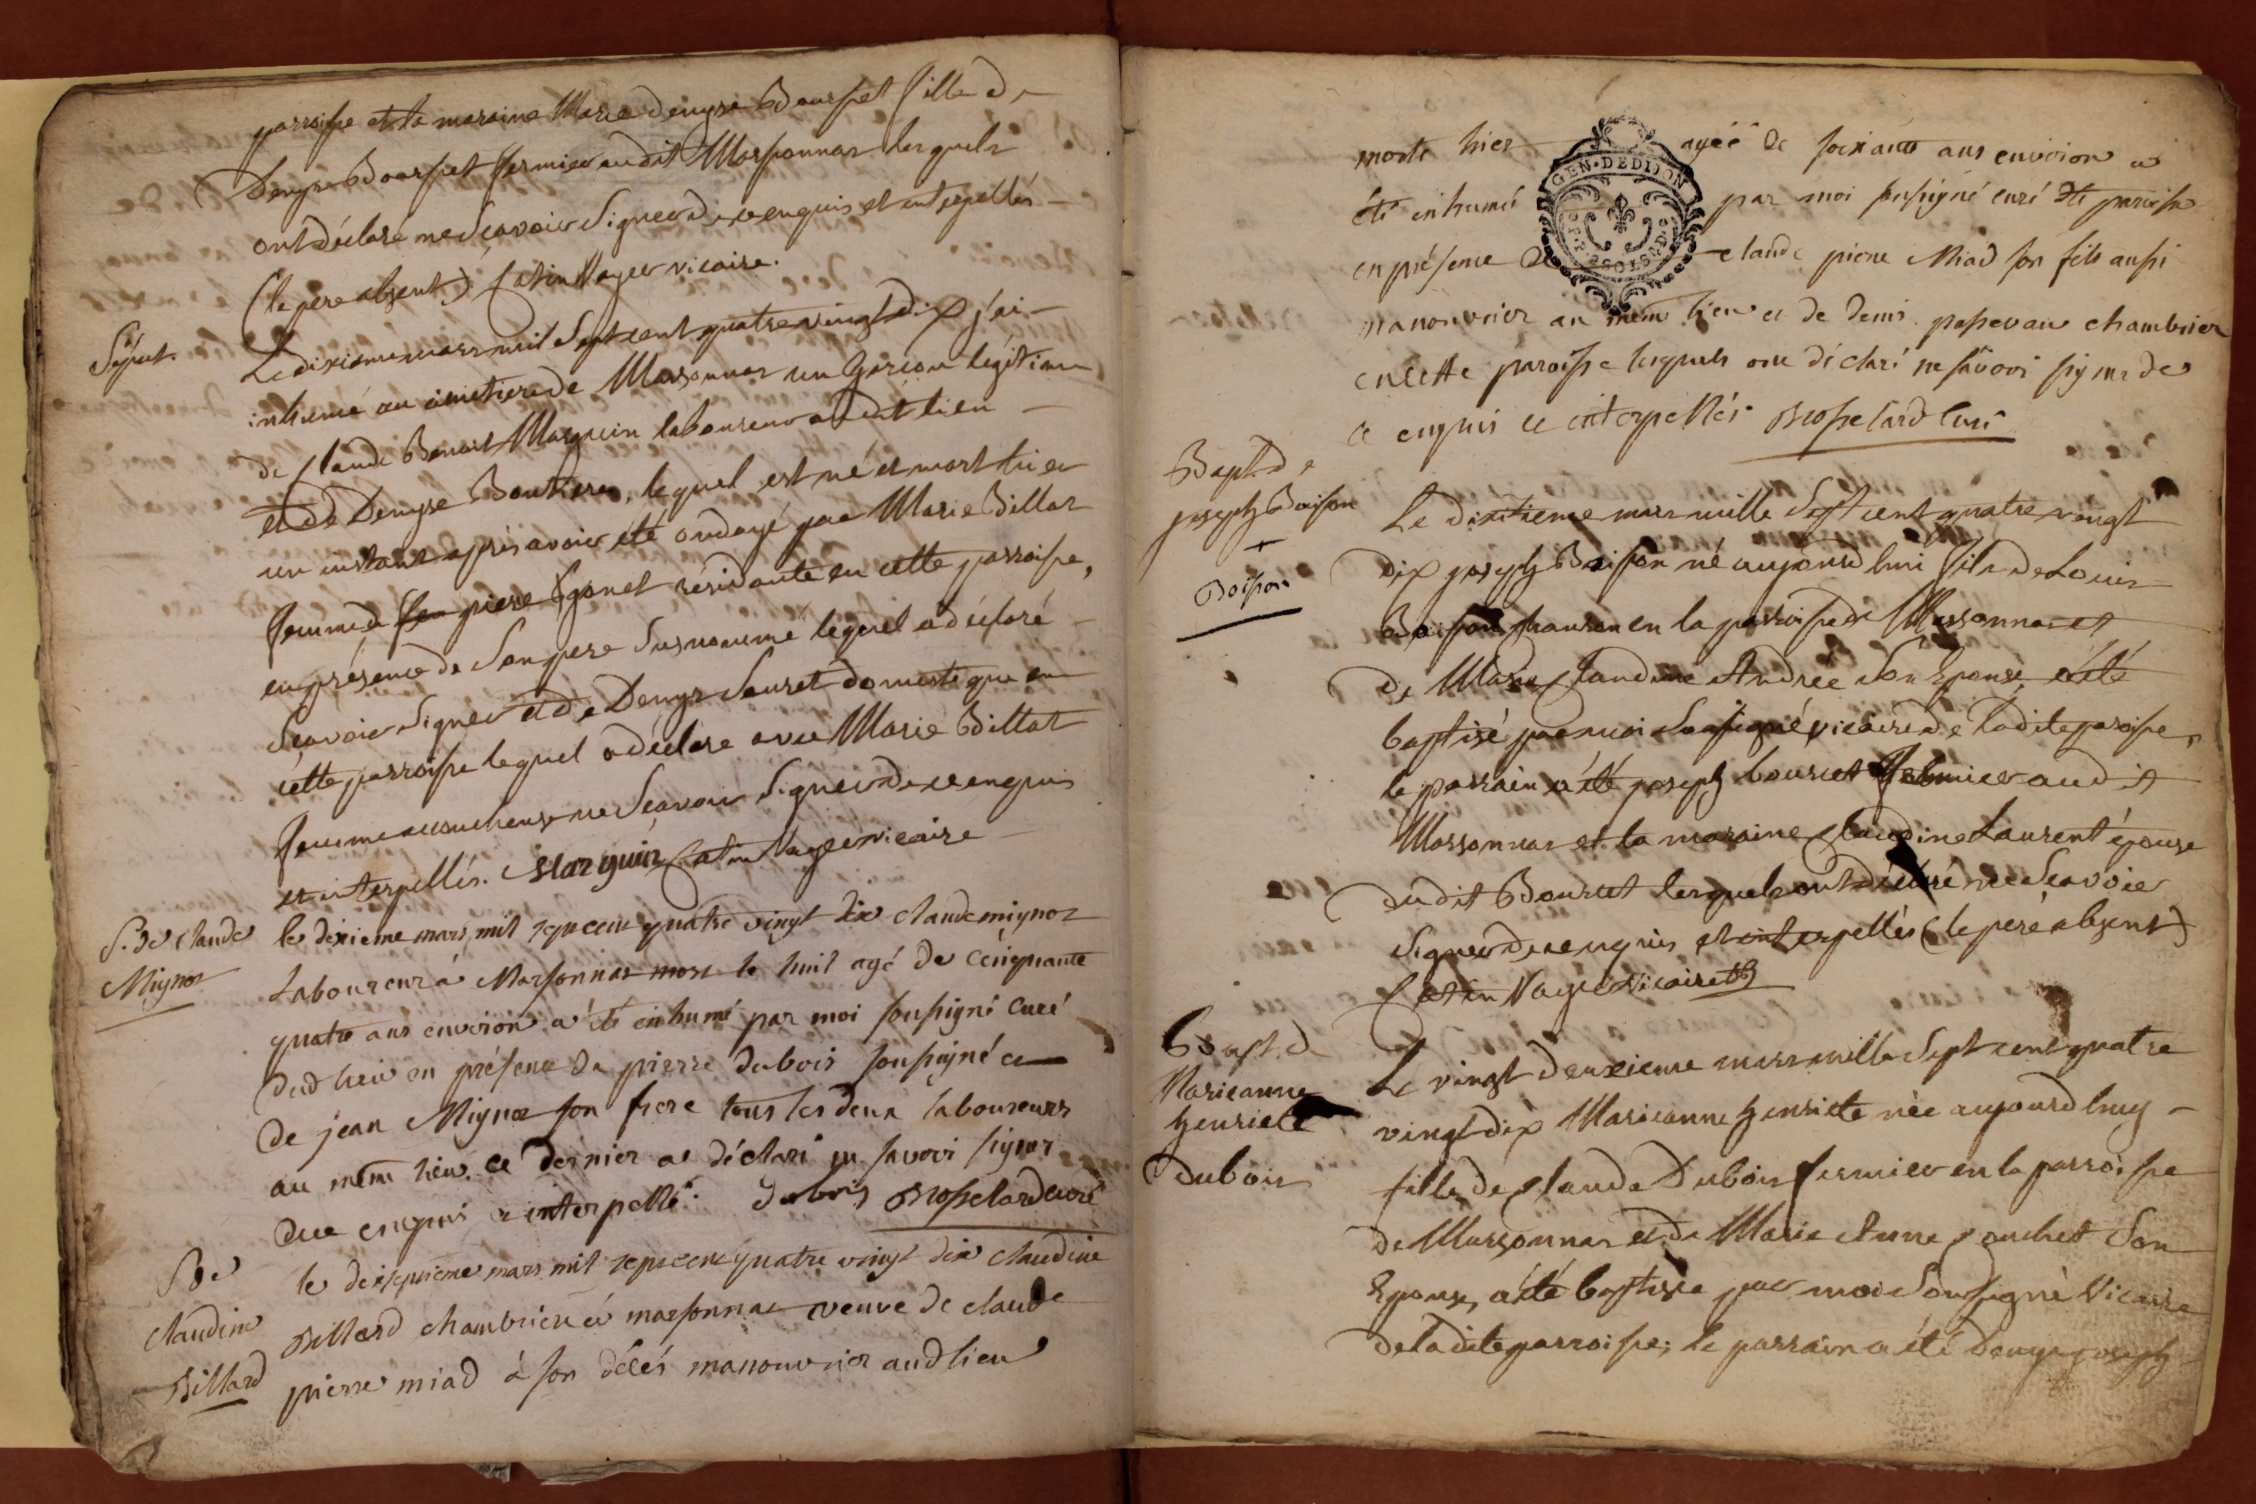 parroisse et la maraine Marie Denyse Bourset fille de
Denys Bourset fermier audit Marsonnas lesquels
ont déclaré ne Scavoir Signer de ce enquis et interpellés
(le pere absent) Catin Vayer vicaire.
Sépult.
Le dixieme mars mil Sept cent quatre vingt dix j'ai
inhumé au cimetiere de Marsonnas un Garcon légitime
de Claude Benoit Marguin laboureur audit lieu
et de Denyse Bouthera, lequel est né et mort hier
un instant après avoir été ondoyé par Marie Billar
femme de feu pierre Gonet résidante en cette parroisse,
en présence de Son pere Susnommé lequel a déclaré
Scavoir Signer et de Denys Souret domestique en
cette parroisse lequel a déclaré avec Marie Billat
femme accoucheuse ne Scavoir Signer de ce enquis
et interpellés. Marguin Catin Vayer vicaire
S. de claude
Mignot
le dixieme mars mil sept cent quatre vingt dix claude mignot
Laboureur à Marsonnas mort le huit agé de cinquante
quatre ans environ a été inhumé par moi soussigné curé
dud lieu en présence de pierre dubois soussigné et
de jean Mignot son frere tous les deux laboureurs
au meme lieu, ce dernier a déclaré ne savoir signer
de ce enquis et interpellé. Dubois Brosselard curé
S. de
claudine
Billard
le dixseptieme mars mil sept cent quatre vingt dix claudine
Billard chambriere à marsonnas veuve de claude
pierre miad à son décés manouvrier aud lieu
GEN. DE DIJON
morte hier agée de soixante ans environ a
été inhumé par moi soussigné curé de paroisse
en présence de claude pierre Miad son fils aussi
manouvrier au meme lieu et de denis passerau chambrier
en cette paroisse lesquels ont déclaré ne savoir signer de
ce enquis et interpellés. Brosselard Curé
Bapt. de
joseph Boisson
+
Boisson
Le dixitieme mars mille Sept cent quatre vingt
dix joseph Boisson né aujourd'hui fils de Louis
Boisson en la parroisse de Marsonnas et
de Marie Claudine Andrée Son Epouse, a été
baptisé par moi Soussigné vicaire de ladite paroisse,
le parrain a été joseph bourset fermier audit
Marsonnas et la maraine Claudine Laurent épouse
dudit Bourset lesquels ont déclaré ne Scavoir
Signer de ce enquis et interpellés (le pere absent)
Catin Vayer Vicaire
Bapt. de
Marieanne
henriete
Dubois
Le vingt deuxieme mars mille Sept cent quatre
vingt dix Marieanne henriete née aujourd'huy
fille de Claude Dubois fermier en la parroisse
de Marsonnas et de Marie Anne Pouchet Son
Epouse, a été baptisée par moi Soussigné Vicaire
de ladite parroisse; le parrain a été Denys joseph